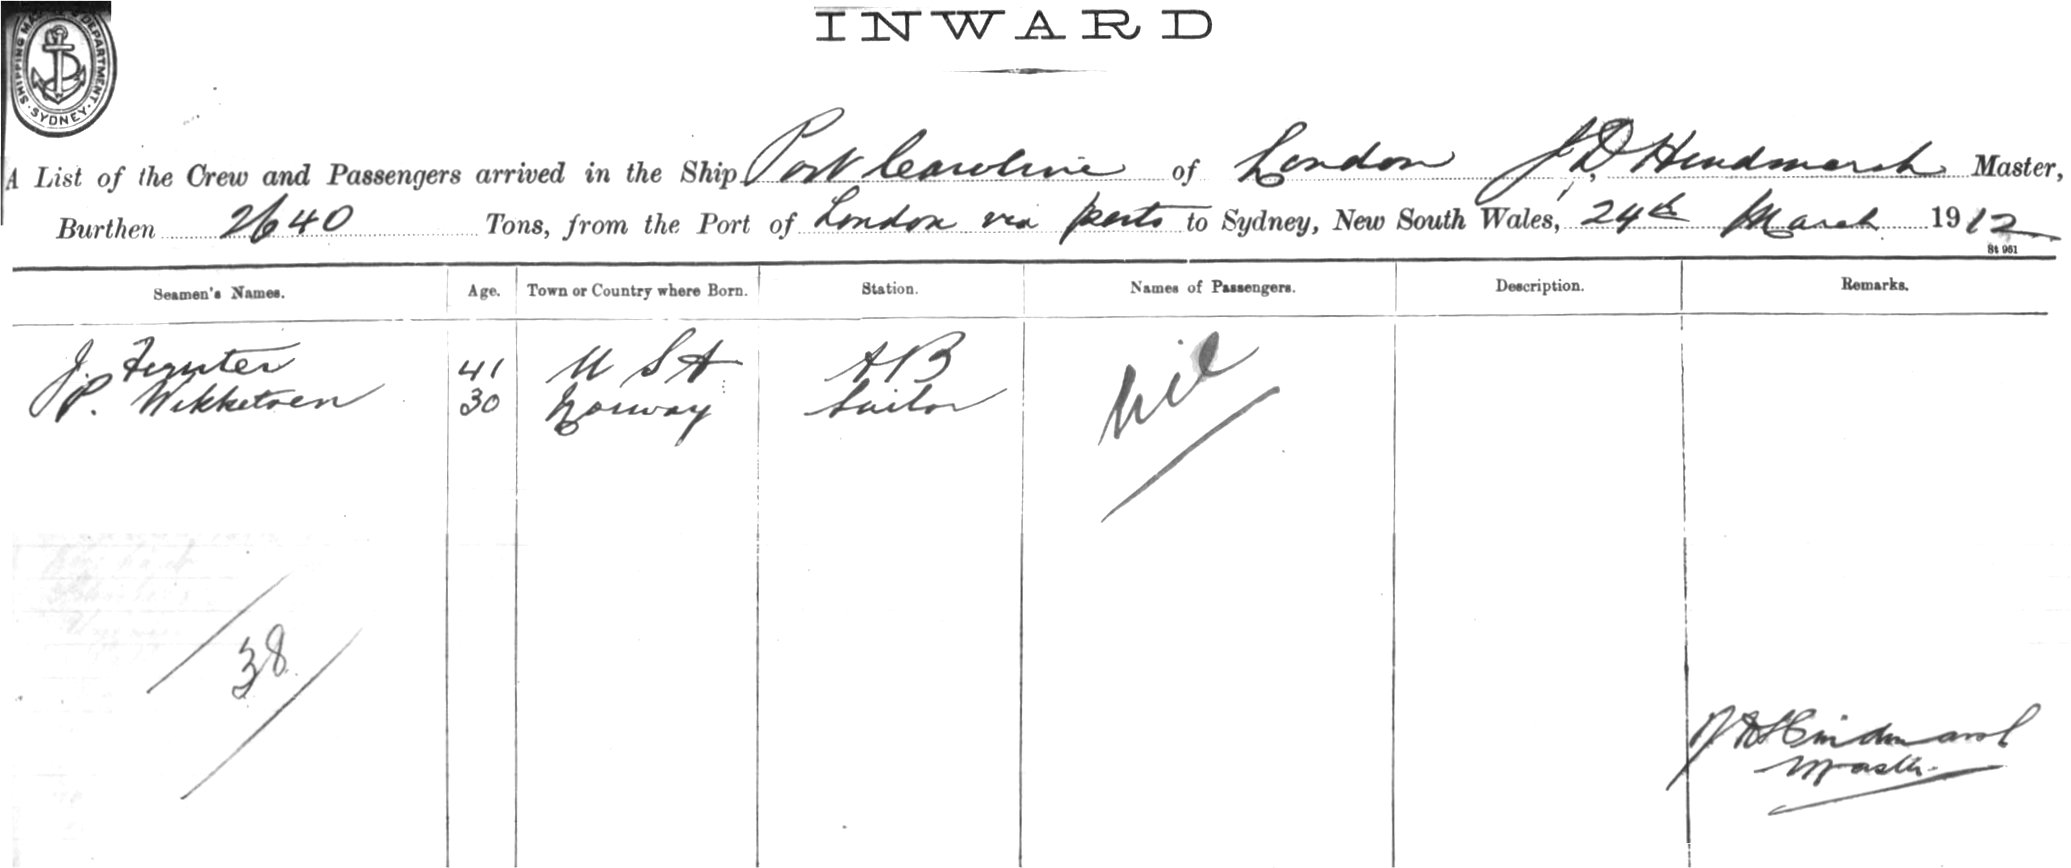 SHIPPING MASTER'S DEPARTMENT
SYDNEY
INWARD
A List of the Crew and Passengers arrived in the Ship Port Caroline of London J. D. Hindmarsh Master,
Burthen 2640 Tons, from the Port of London via ports to Sydney, New South Wales, 24th March 1912
St 961
Seamen's Names. Age. Town or Country where Born. Station. Names of Passengers. Description. Remarks.
J. 41 U S A AB nil
P. 30 Norway Sailor
38
J D Hindmarsh
Master